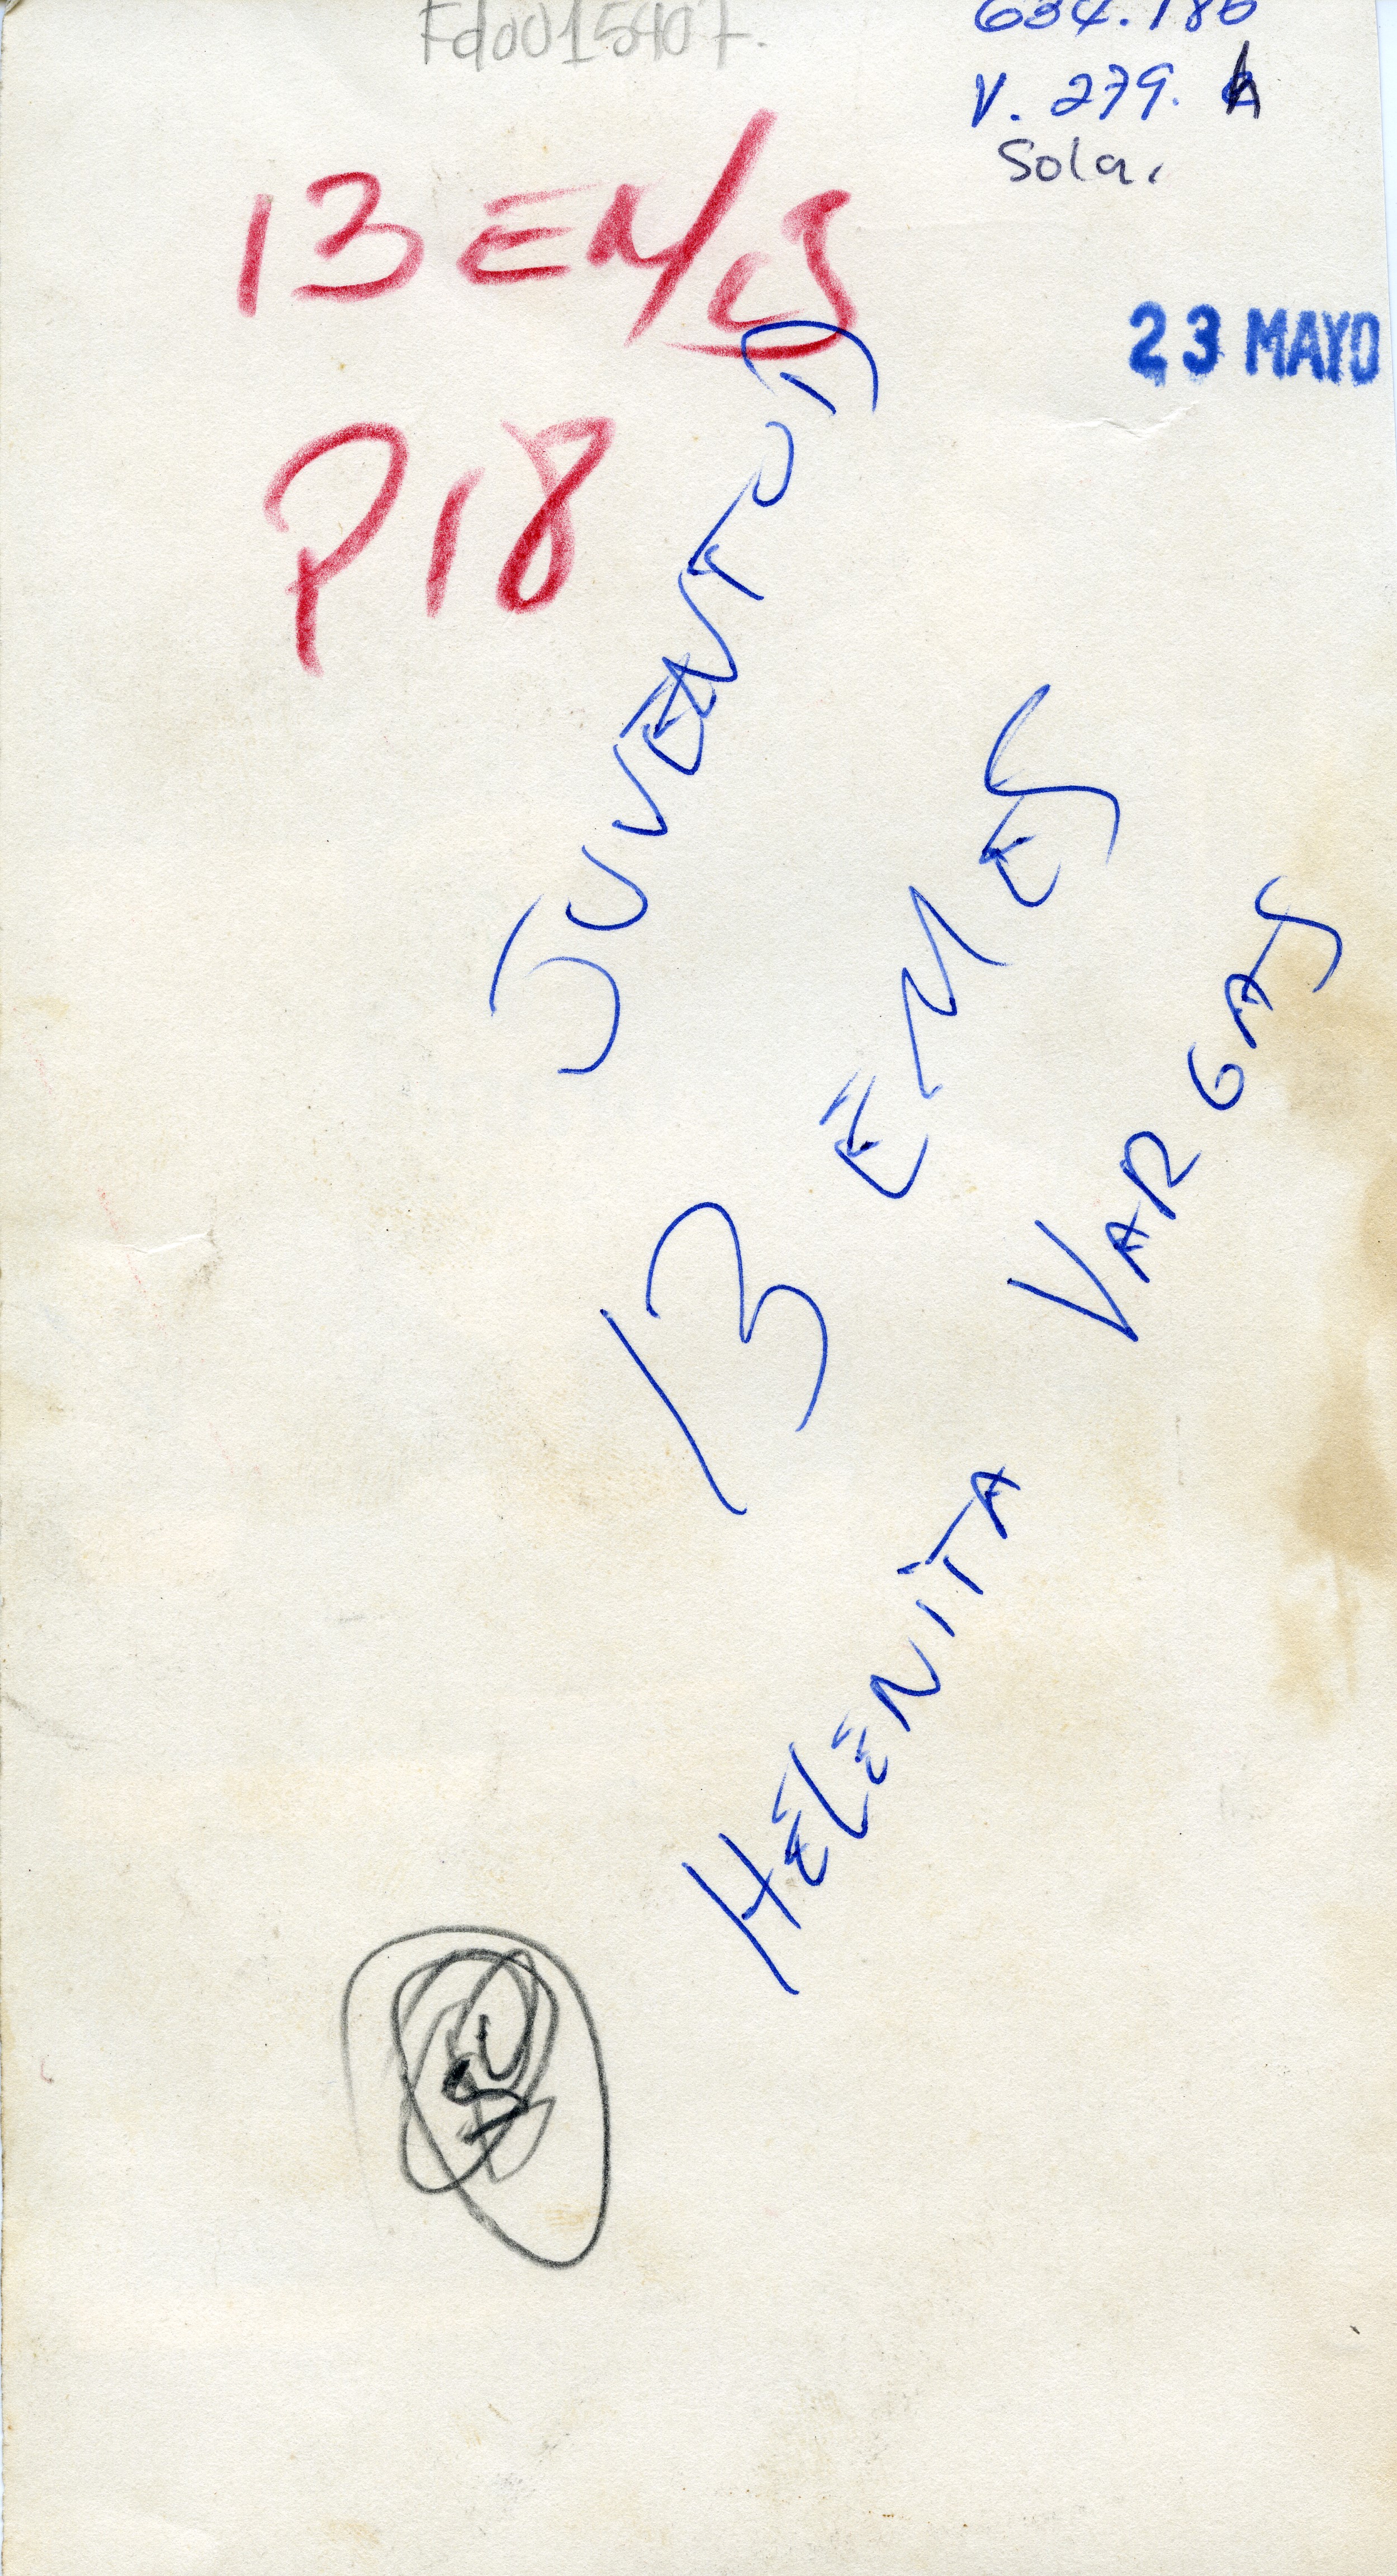 Fdo0015407.
634.186
V. 279. A
Sola.
13 EM/ES
23 MAYO
P18
JUVENTUD
13 EMES
HELENITA VARGAS